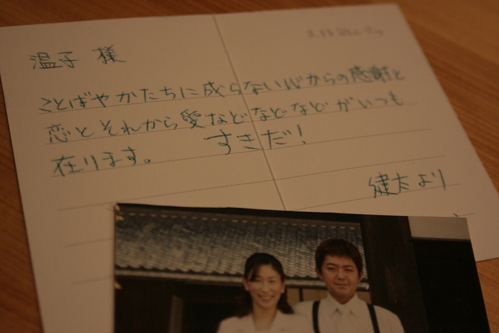 温子 様
ことばやかたちに成らない心からの感謝と
恋とそれから愛などなどなどがいつも
在ります。 すきだ!
健太より